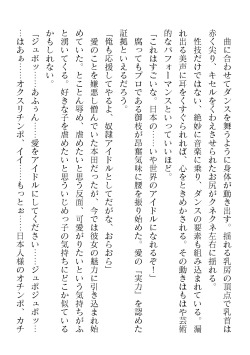 曲に合わせてダンスを舞うように身体が動き出す。揺れる乳房の頂点で乳首は
赤く尖り、キセルをくわえさせられたお尻がクネクネ左右に揺れる。
性技だけではない、絶妙に音楽に乗り、ダンスの要素も組み込まれている。漏
れ出る美声に耳をすぐられれば、心をときめかされる。その動きはもはや芸術
的なパフォーマンスといっていいほど。
「これはすごいな、日本の……いや世界のアイドルになれるぞ！」
腐ってもプロである御枝が昂奮気味に腰を振り始めた。愛の「実力」を認めた
証拠といえるだろう。
「俺も応援してやるよ、奴隷アイドルとしてだがな、おらおら」
愛のことを嫌悪し憎んでいた本田だったが、今では彼女の魅力に引き込まれ始
めていた。とことん辱め、虐めたいと思う反面、可愛がりたいという気持ちがふ
と湧いてくる。好きな子を虐めたいと思ういじめっ子の気持ちにどこか似ている
かもしれない。
「ジュボッ……あふぅん……愛をアイドルにしてください……ジュボジュボッ…
…はあぁ……オクスリチンポ、イイ……もっとぉ……日本人様のオチンポ、カチ